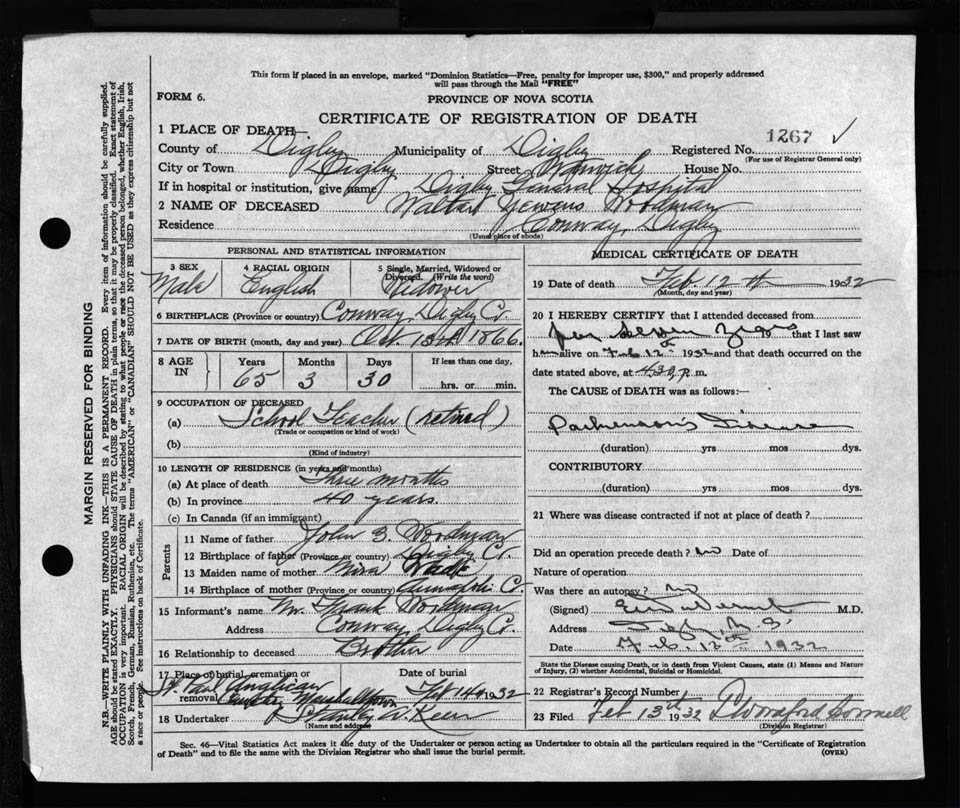 This form if placed in an envelope, marked "Dominion Statistics—Free, penalty for improper use, $300," and properly addressed
will pass through the Mail "FREE"
FORM 6.
PROVINCE OF NOVA SCOTIA
CERTIFICATE OF REGISTRATION OF DEATH
1267 ✓
1 PLACE OF DEATH—
County of Digby Municipality of Digby Registered No.
(For use of Registrar General only)
City or Town Digby Street Warwick House No.
If in hospital or institution, give name Digby General Hospital
2 NAME OF DECEASED Woodman
Residence Conway, Digby
(Usual place of abode)
PERSONAL AND STATISTICAL INFORMATION
3 SEX Male
4 RACIAL ORIGIN English
5 Single, Married, Widowed or Divorced. (Write the word) Widower
6 BIRTHPLACE (Province or country) Conway, Digby Co.
7 DATE OF BIRTH (month, day and year) Oct. 13th 1866.
8 AGE IN Years 65 Months 3 Days 30 If less than one day, hrs. or min.
9 OCCUPATION OF DECEASED
(a) School Teacher (retired)
(Trade or occupation or kind of work)
(b)
(Kind of industry)
10 LENGTH OF RESIDENCE (in years and months)
(a) At place of death Three months
(b) In province 40 years.
(c) In Canada (if an immigrant)
Parents
11 Name of father John S. Woodman
12 Birthplace of father (Province or country) Digby Co.
13 Maiden name of mother Wade
14 Birthplace of mother (Province or country) Annapolis Co.
15 Informant's name Mr. Frank Woodman
Address Conway, Digby Co.
16 Relationship to deceased Brother
17 Place of burial, cremation or removal St. Paul Anglican Cemetery Marshalltown
Date of burial Feb 14th 1932
18 Undertaker Stanley
(Name and address)
MEDICAL CERTIFICATE OF DEATH
19 Date of death Feb. 12th 1932
(Month, day and year)
20 I HEREBY CERTIFY that I attended deceased from
for seven years 19 that I last saw
him alive on Feb 12th 1932 and that death occurred on the
date stated above, at 4.30 P.m.
The CAUSE OF DEATH was as follows:—
Parkinson's Disease
(duration) yrs mos. dys.
CONTRIBUTORY
(duration) yrs mos. dys.
21 Where was disease contracted if not at place of death?
Did an operation precede death? no Date of
Nature of operation
Was there an autopsy? no
(Signed) M.D.
Address Digby, N.S.
Date Feb. 12th 1932
State the Disease causing Death, or in death from Violent Causes, state (1) Means and Nature
of Injury, (2) whether Accidental, Suicidal or Homicidal.
22 Registrar's Record Number
23 Filed Feb 13th 1932
(Division Registrar)
Sec. 46—Vital Statistics Act makes it the duty of the Undertaker or person acting as Undertaker to obtain all the particulars required in the "Certificate of Registration
of Death" and to file the same with the Division Registrar who shall issue the burial permit.
(OVER)
MARGIN RESERVED FOR BINDING
N.B.—WRITE PLAINLY WITH UNFADING INK—THIS IS A PERMANENT RECORD. Every item of information should be carefully supplied.
AGE should be stated EXACTLY. PHYSICIANS should STATE CAUSE OF DEATH in plain terms, so that it may be properly classified. Exact statement of
OCCUPATION is very important. RACIAL ORIGIN will be described by stating to what people or race the deceased person belonged, whether English, Irish,
Scotch, French, German, Russian, Ruthenian, etc. The terms "AMERICAN" or "CANADIAN" SHOULD NOT BE USED as they express citizenship but not
a race or people. See instructions on back of Certificate.